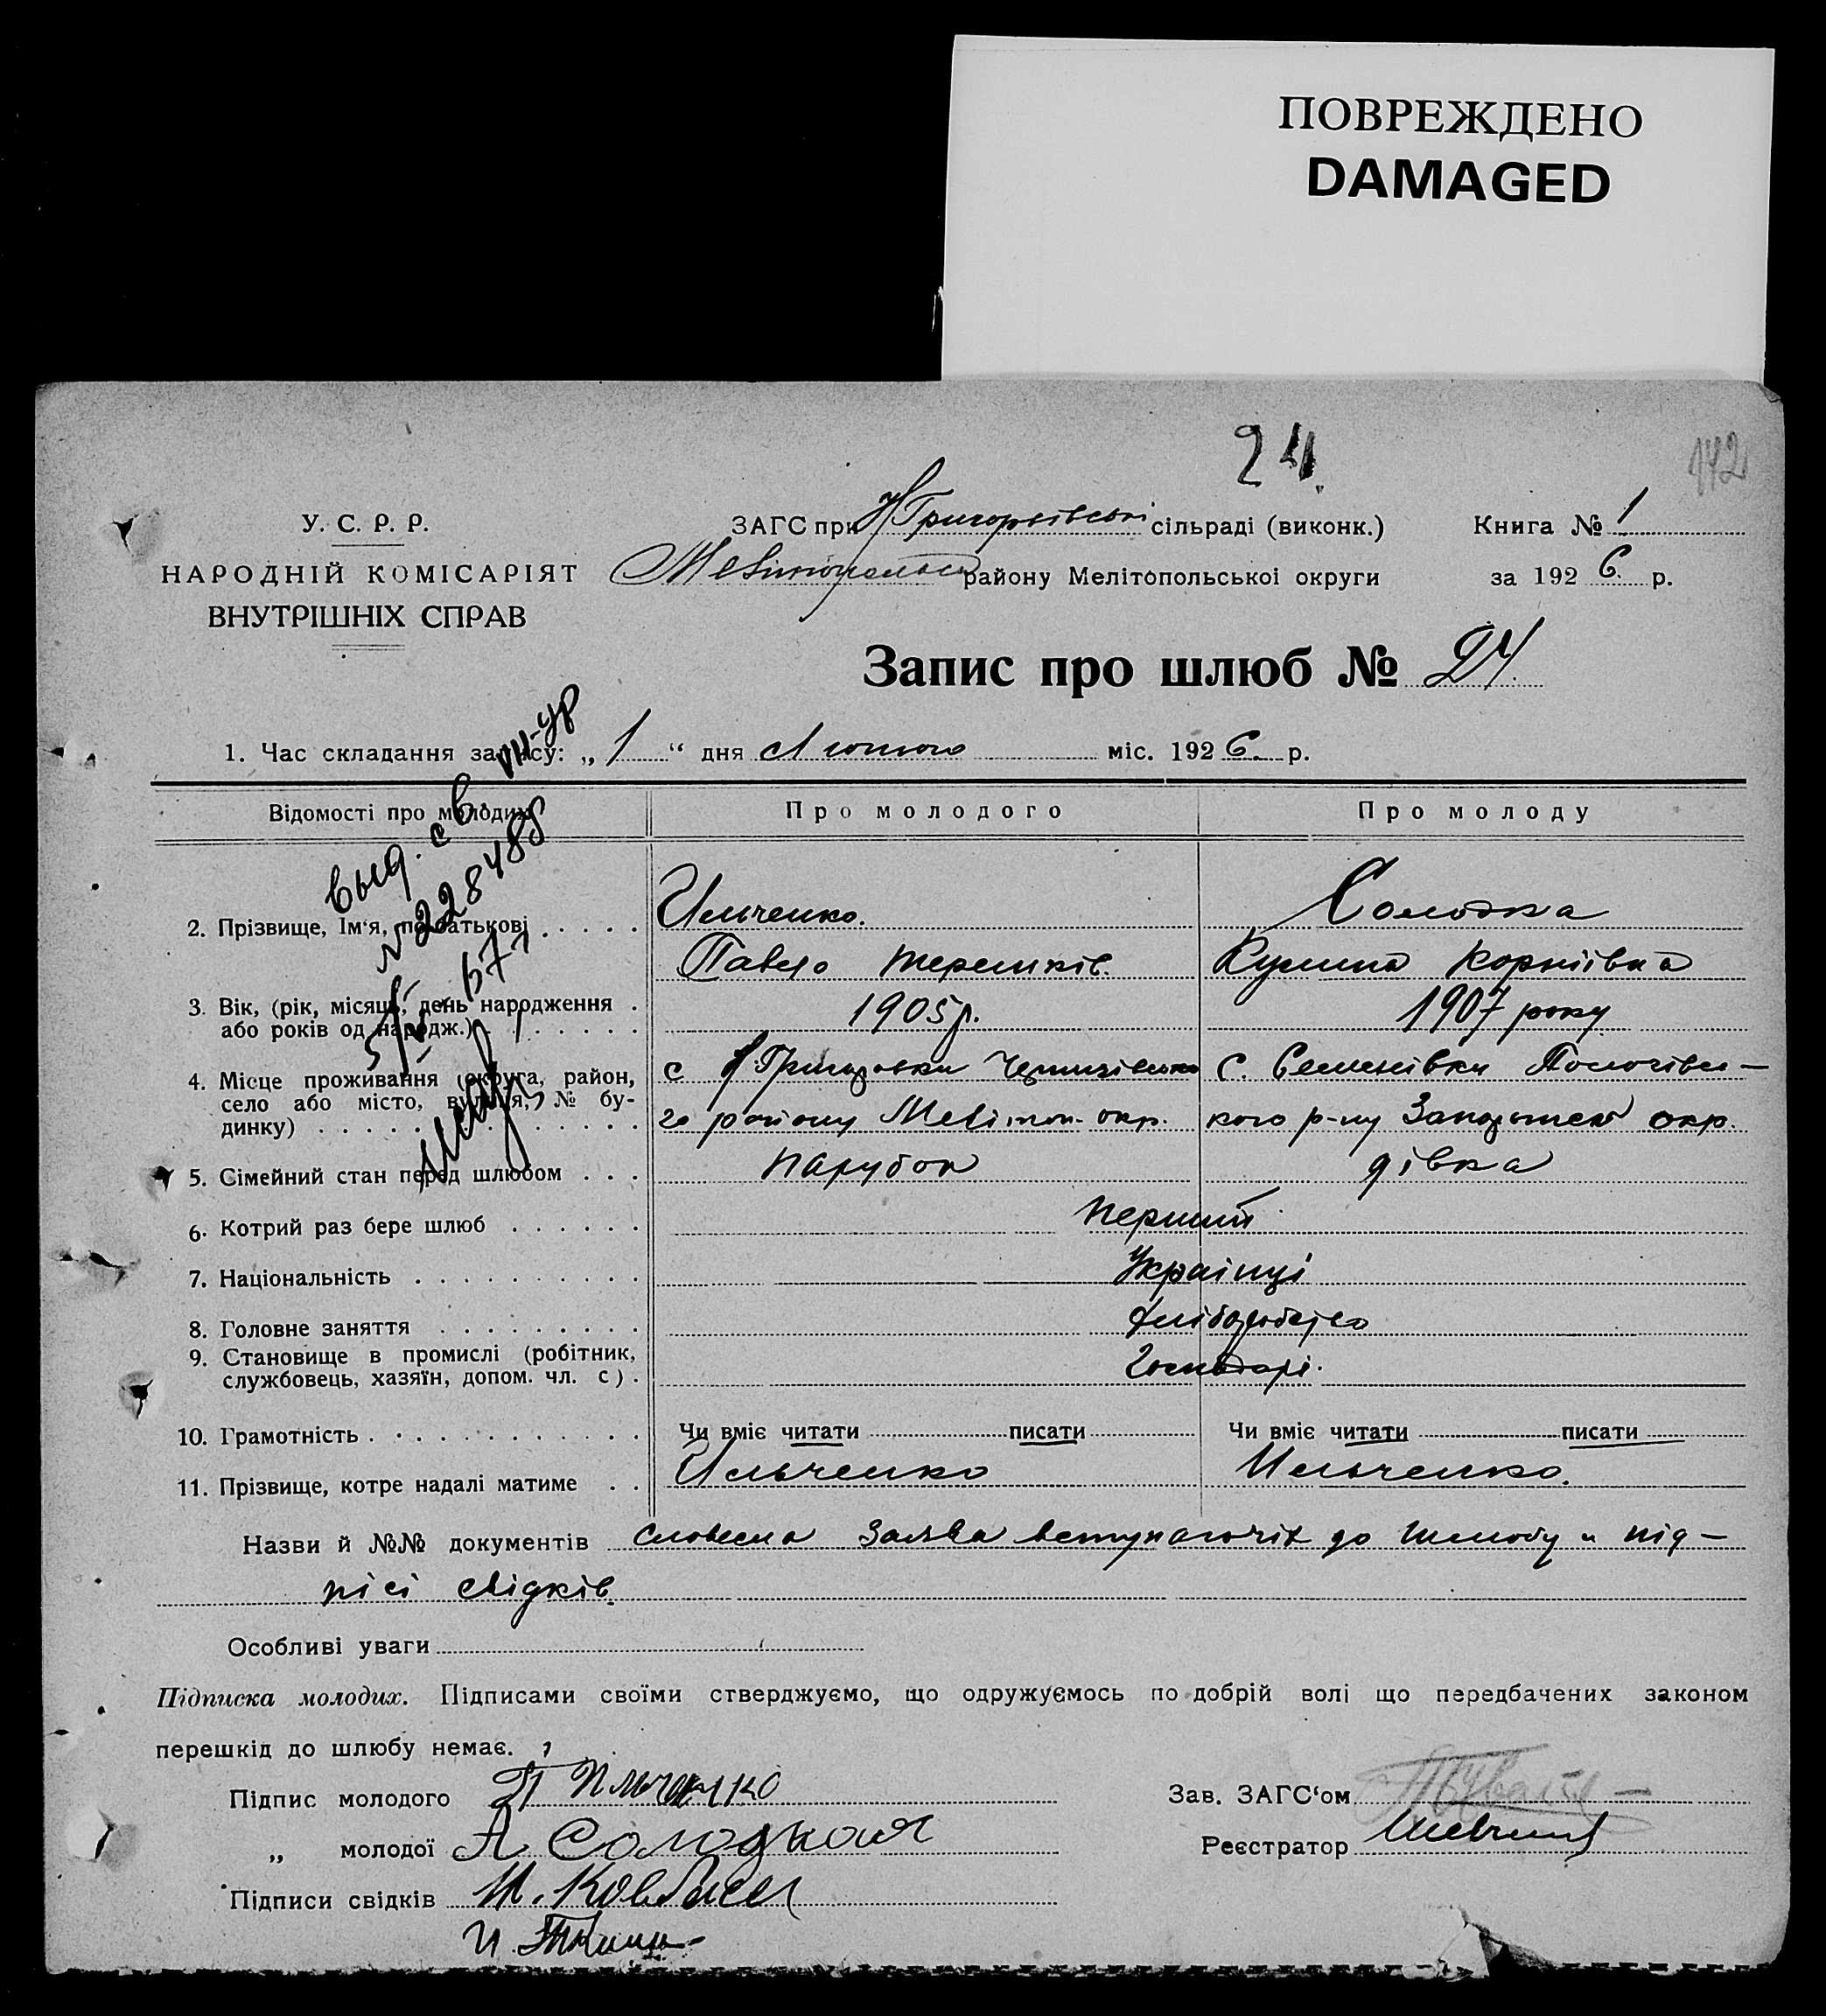 ПОВРЕЖДЕНО
DAMAGED
24
142
У. С. Р. Р.
НАРОДНІЙ КОМІСАРІЯТ
ВНУТРІШНІХ СПРАВ
ЗАГС при Н Григорьівські сільраді (виконк.)
Книга № 1
району Мелітопольскоі округи
за 192 6. р.
Запис про шлюб № 24.
1. Час складання запису: „ 1 “ дня Лютого міс. 192 6. р.
Відомості про молодих
Про молодого
Про молоду
Выд. св.
№ 228488
2. Прізвище, Ім‘я, по батькові
Ильченко.
Солодка
Павло Терешків.
Кулина Корніївна
3. Вік, (рік, місяць, день народження
або років од народж.)
1905 р.
1907 року
4. Місце проживання (округа, район,
село або місто, вулиця, № бу-
динку)
с Н Григоровки
го району Мелітоп. окр.
с. Семенівки Пологівсь—
кого р-ну окр.
5. Сімейний стан перед шлюбом
парубок
дівка
6. Котрий раз бере шлюб
перший
7. Національність
Украінці
8. Головне заняття
хліборобство
9. Становище в промислі (робітник,
службовець, хазяїн, допом. чл. с).
Господарі.
10. Грамотність
Чи вміє читати писати
Чи вміє читати писати
11. Прізвище, котре надалі матиме
Ильченко
Ильченко.
Назви й №№ документів словесна заява вступаючіх до шлюбу и під—
пісі свідків.
Особливі уваги
Підписка молодих. Підписами своїми стверджуємо, що одружуємось по добрій волі що передбачених законом
перешкід до шлюбу немає.
Підпис молодого П Ильченко
„ молодої А Солодкая
Підписи свідків
Зав. ЗАГС‘ом
Реєстратор